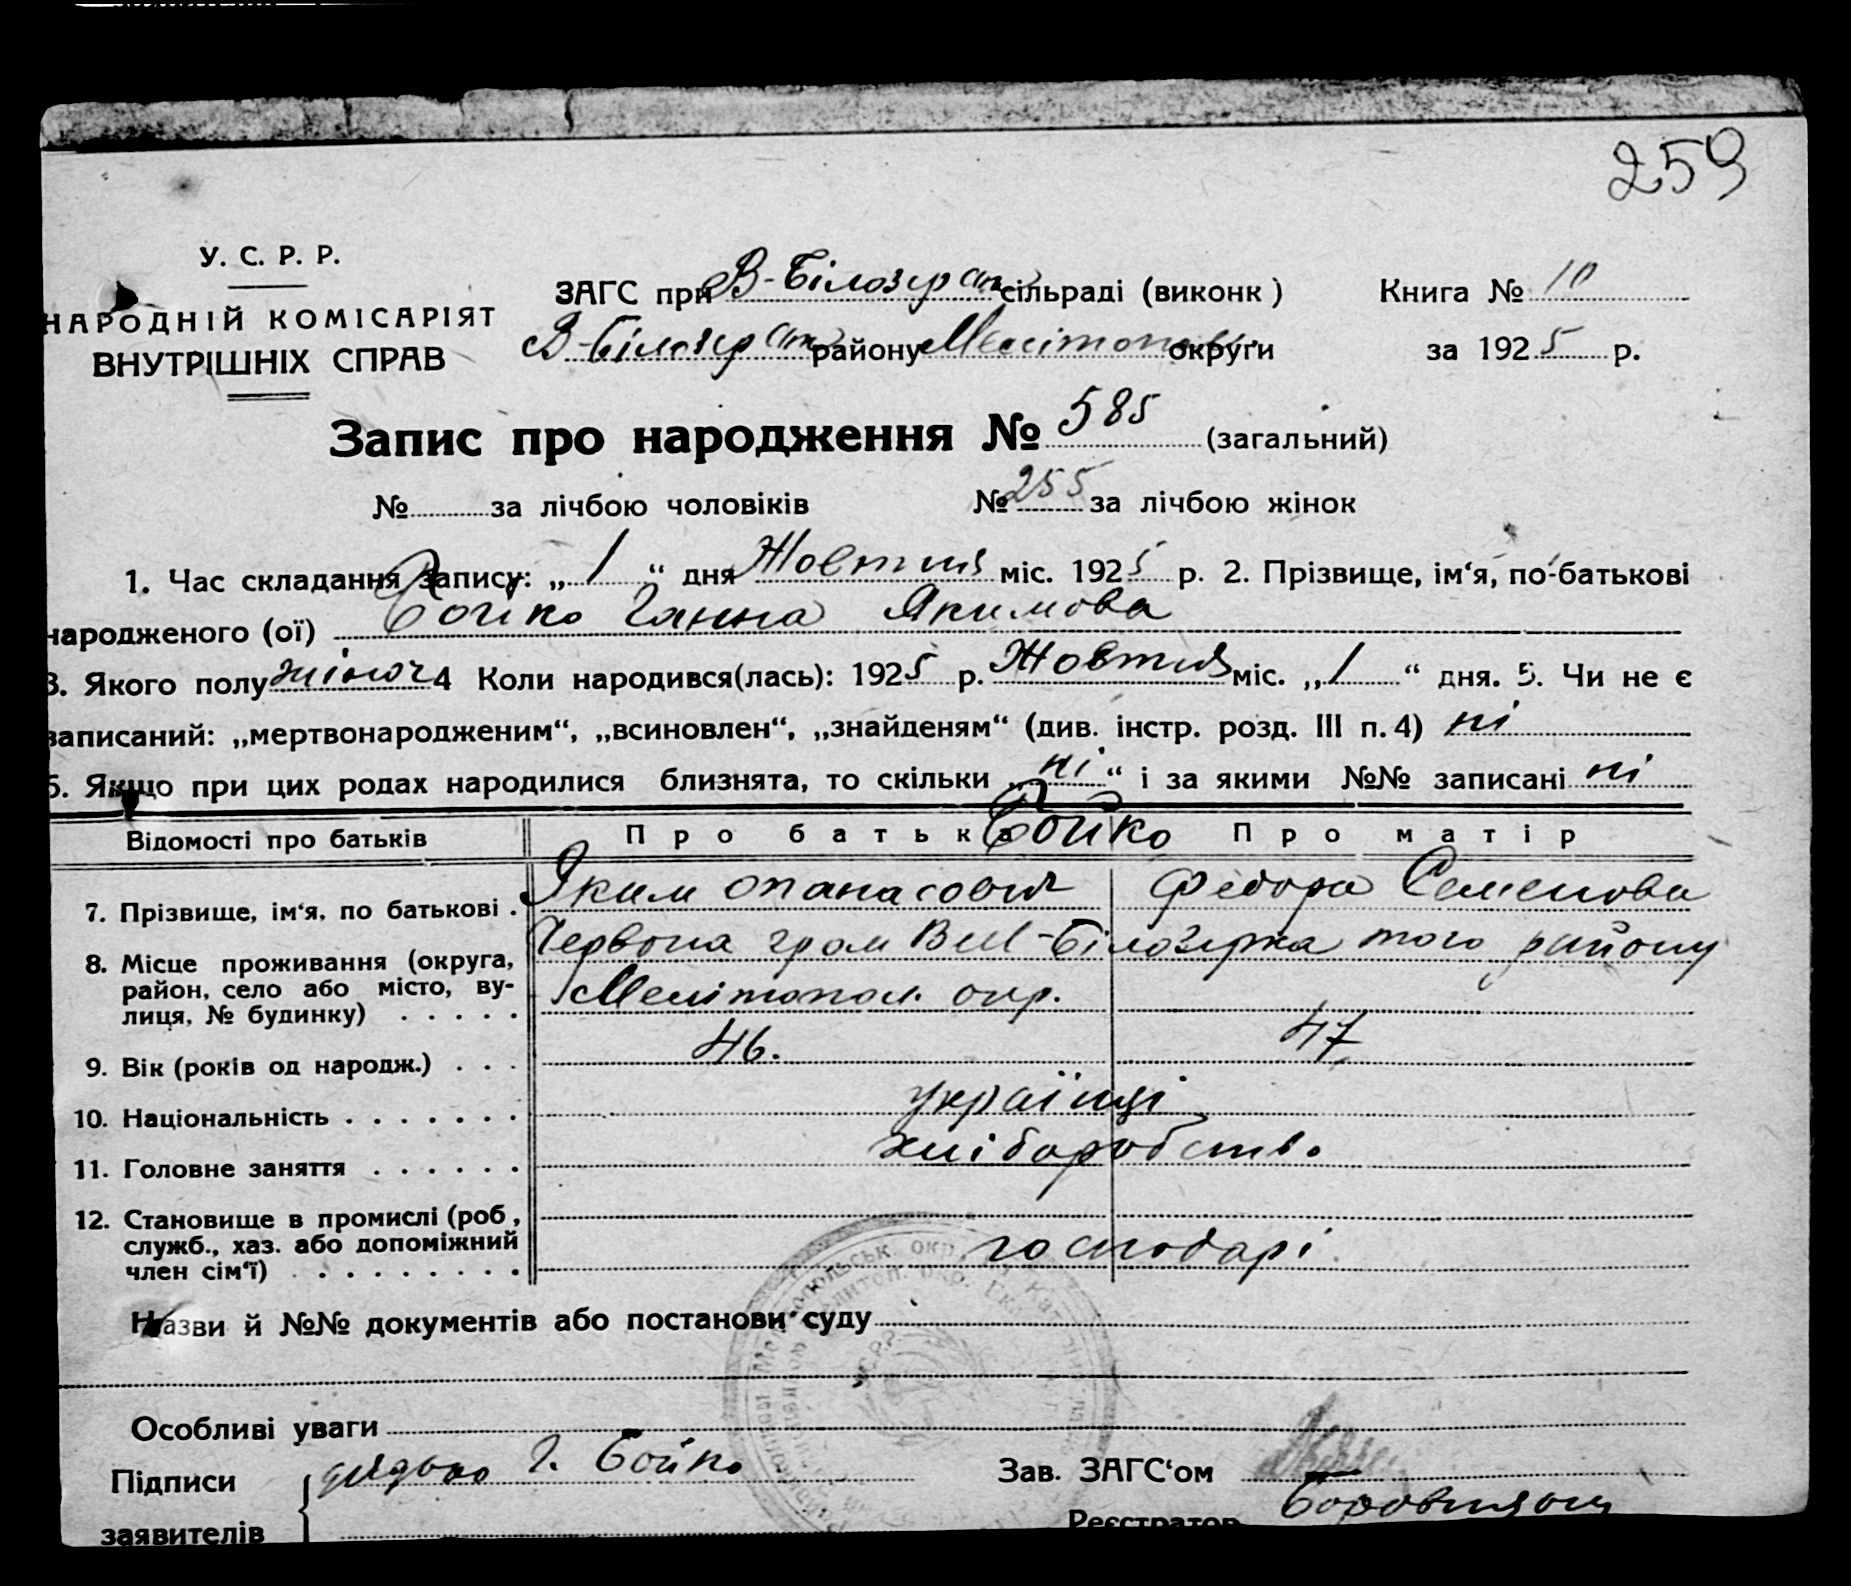 259
У. С. Р. Р.
НАРОДНІЙ КОМІСАРІЯТ
ВНУТРІШНІХ СПРАВ
ЗАГС при В-Білозерськ сільраді (виконк )
В-Білозерськ району Мелітопол. округи
Книга № 10
за 1925 р.
Запис про народження № 585 (загальний)
№ за лічбою чоловіків № 255 за лічбою жінок
1. Час складання запису: „ 1 “ дня Жовтня міс. 1925 р. 2. Прізвище, ім‘я, по-батькові
народженого (ої) Бойко Ганна Якимова
3. Якого полу жіноч 4 Коли народився(лась): 1925 р. Жовтня міс. „ 1 “ дня. 5. Чи не є
записаний: „мертвонародженим“, „всиновлен“, „знайденям“ (див. інстр. розд. III п. 4) ні
6. Якщо при цих родах народилися близнята, то скільки „ ні “ і за якими №№ записані ні
Відомості про батьків Про батька Бойко Про матір
7. Прізвище, ім‘я, по батькові . Яким Опанасович Федора Семенова
8. Місце проживання (округа, район, село або місто, вулиця, № будинку) . . . . . Червона гром Вел-Білозерка того району
Мелітопол. окр.
9. Вік (років од народж.) . . . 46. 47
10. Національність . . . . . . . українці
11. Головне заняття . . . . . . хліборобство
12. Становище в промислі (роб ,
служб., хаз. або допоміжний
член сім‘ї) . . . . . . . . . господарі
Назви й №№ документів або постанови суду
Особливі уваги
Підписи
заявителів
дядько Г. Бойко
Зав. ЗАГС‘ом
Реєстратор